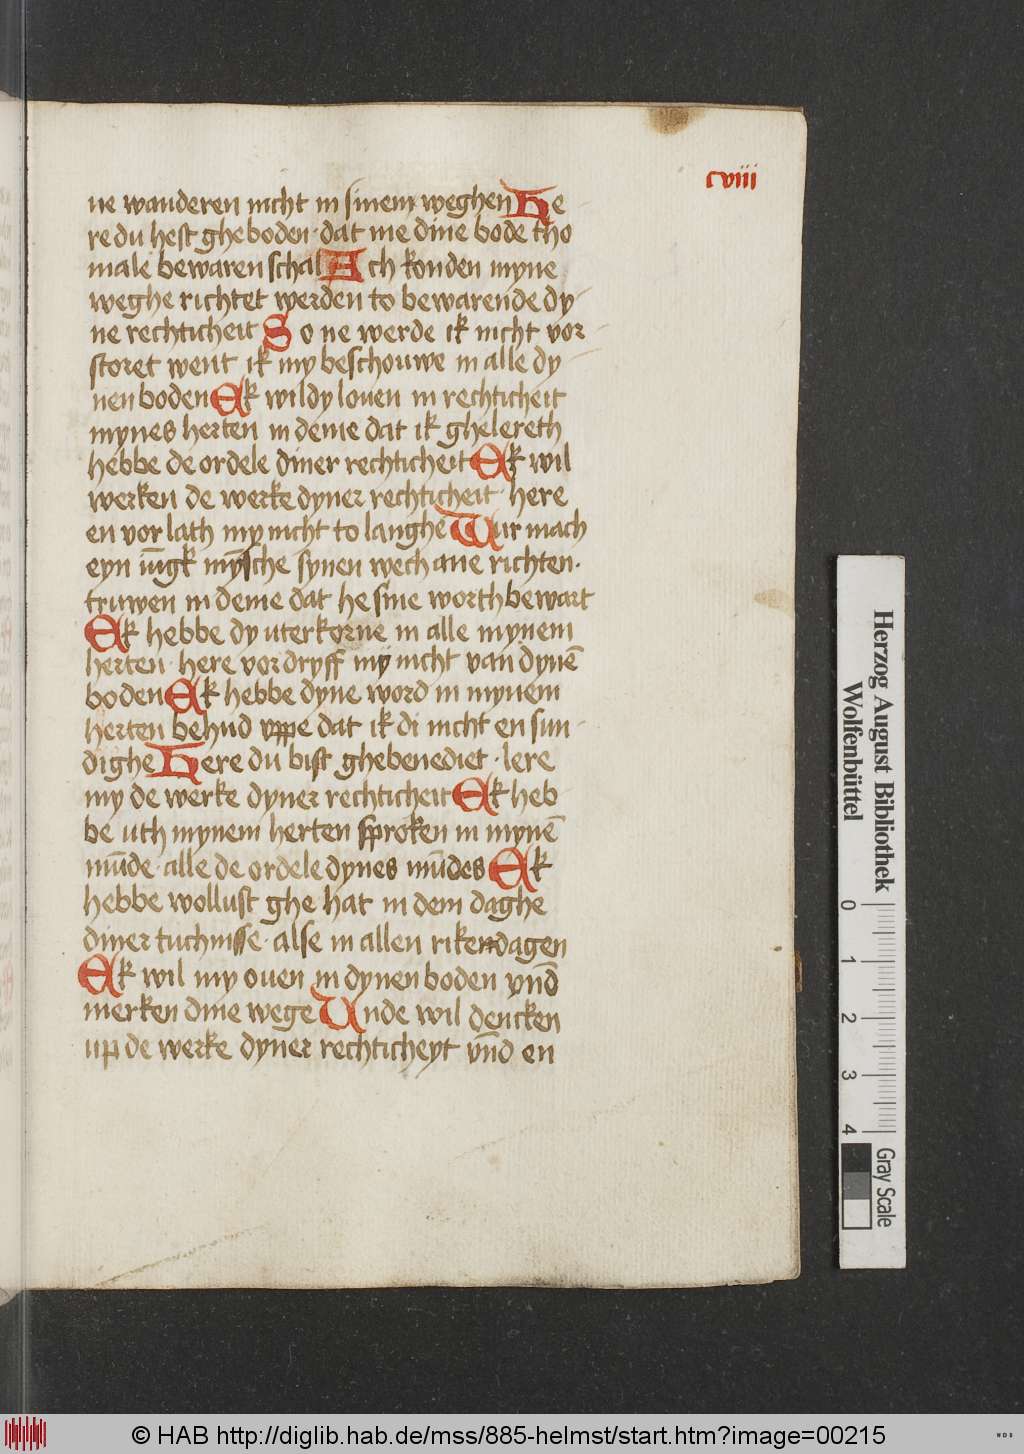 cviii
ne wanderen nicht in sinem weghen He
re du hest gheboden · dat me dine bode tho
male bewaren schal Ach konden myne
weghe richtet werden to bewarende dy
ne rechticheit So ne werde ik nicht vor
storet went ik my beschouwe in alle dy
nen boden Ek wil dy louen in rechticheit
mynes herten in deme dat ik ghelereth
hebbe de ordele diner rechticheit Ek wil
werken de werke dyner rechticheit · here
en vor lath my nicht to langhe Wur mach
eyn iūgk mȳsche synen wech ane richten ·
truwen in deme dat he sine worth bewart
Ek hebbe dy uterkorne in alle mynem
herten · here vordryff my nicht van dynē
boden Ek hebbe dyne word in mynem
herten behud uppe dat ik di nicht en sun
dighe Here du bist ghebenediet · lere
my de werke dyner rechticheit Ek heb
be uth mynem herten sproken in mynē
mūde · alle de ordele dynes mūdes Ek
hebbe wollust ghe hat in dem daghe
diner tuchnisse · alse in allen rikendagen
Ek wil my ouen in dynen boden vn̄d
merken dine wege Unde wil dencken
up de werke dyner rechticheyt vn̄d en
Herzog August Bibliothek
Wolfenbüttel
0 1 2 3 4
Gray Scale
© HAB http://diglib.hab.de/mss/885-helmst/start.htm?image=00215